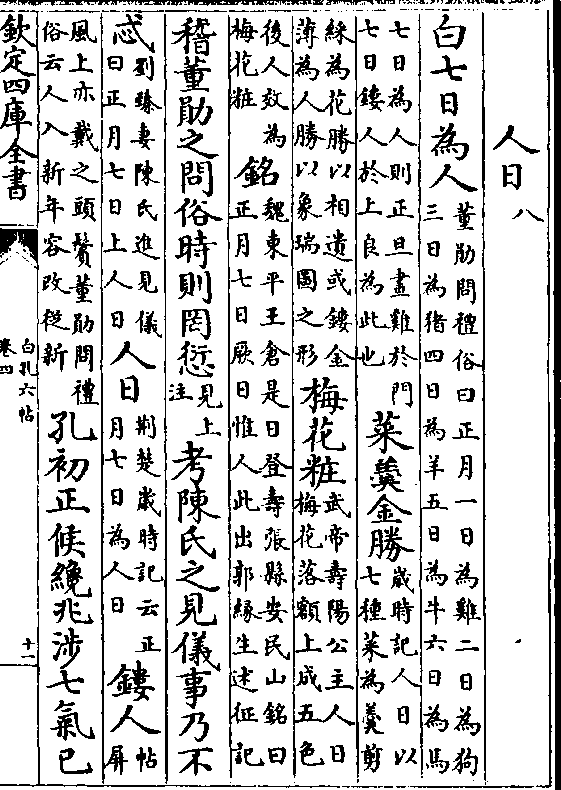 人日八
白七日為人
董勛問禮俗曰正月一日為雞二日為狗
三日為猪四日為羊五日為牛六日為馬
七日為人則正旦畫雞於門
七日鏤人於上良為此也
菜羹金勝
歲時記人日以
七種菜為羹剪
綵為花勝以相遺或鏤金
薄為人勝以象瑞圖之形
梅花粧
武帝壽陽公主人日
梅花落額上成五色
後人效為
梅花粧
銘
魏東平王倉是日登壽張縣安民山銘曰
正月七日厥日惟人此出郭緣生述征記
稽董勛之問俗時則罔愆
見上
注
考陳氏之見儀事乃不
忒
劉臻妻陳氏進見儀
曰正月七日上人日
人日
荆楚歲時記云正
月七日為人日
鏤人
帖
屏
風上亦戴之頭鬢董勛問禮
俗云人入新年容改從新
孔初正候纔兆涉七氣已
欽定四庫全書
白孔六帖
卷四
十一